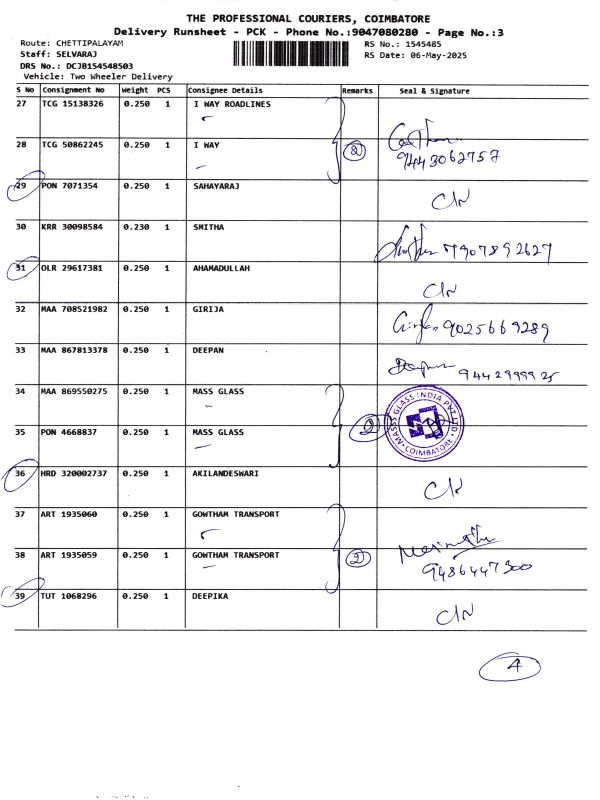 THE PROFESSIONAL COURIERS, COIMBATORE
Delivery Runsheet - PCK - Phone No.:9047080280 - Page No.:3
Route: CHETTIPALAYAM
RS No.: 1545485
Staff: SELVARAJ
RS Date: 06-May-2025
DRS No.: DCJB154548503
Vehicle: Two Wheeler Delivery
S No Consignment No Weight PCS Consignee Details Remarks Seal & Signature
27 TCG 15138326 0.250 1 I WAY ROADLINES
28 TCG 50862245 0.250 1 I WAY 2
9443062757
29 PON 7071354 0.250 1 SAHAYARAJ
C/N
30 KRR 30098584 0.230 1 SMITHA
7907892627
31 OLR 29617381 0.250 1 AHAMADULLAH
C/N
32 MAA 708521982 0.250 1 GIRIJA
9025669289
33 MAA 867813378 0.250 1 DEEPAN
34 MAA 869550275 0.250 1 MASS GLASS
MASSS GLASS INDIA PVT LTD
COIMBATORE
35 PON 4668837 0.250 1 MASS GLASS 2
36 HRD 320002737 0.250 1 AKILANDESWARI
C/N
37 ART 1935060 0.250 1 GOWTHAM TRANSPORT
38 ART 1935059 0.250 1 GOWTHAM TRANSPORT 2
9486447300
39 TUT 1068296 0.250 1 DEEPIKA
C/N
4